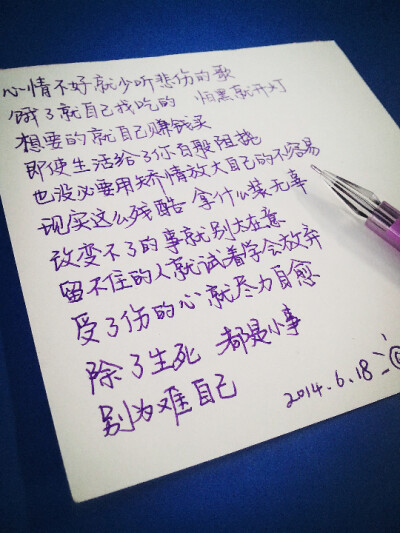 心情不好就少听悲伤的歌
饿了就自己找吃的 怕黑就开灯
想要的就自己赚钱买
即使生活给了你百般阻挠
也没必要用矫情放大自己的不容易
现实这么残酷 拿什么装无事
改变不了的事就别太在意
留不住的人就试着学会放弃
受了伤的心就尽力自愈
除了生死 都是小事
别为难自己
2014.6.18